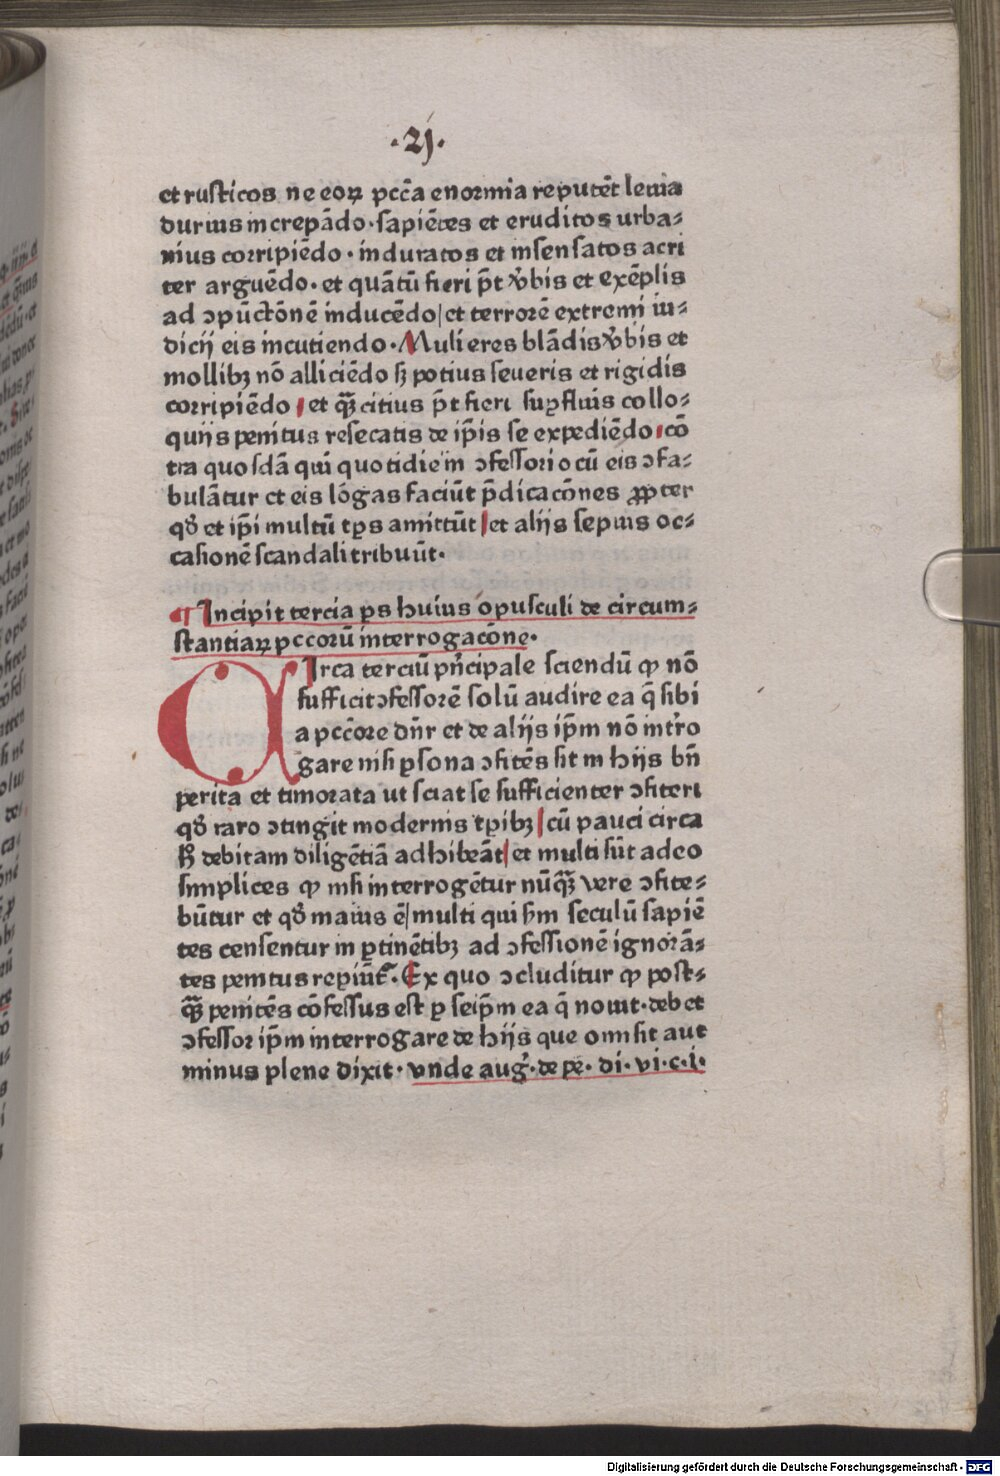 ·21·
et rusticos ne eoꝝ pccā enormia reputēt leuia
durius increpādo·sapiētes et eruditos urba⸗
nius corripiēdo·induratos et insensatos acri
ter arguēdo·et quātū fieri p̄t v̄bis et exēplis
ad ↄpūctōnē inducēdo/et terrorē extremi iu⸗
dicij eis incutiendo·Mulieres blādis v̄bis et
mollibꝫ nō alliciēdo sꝫ potius seueris et rigidis
corripiēdo/et qꝫ̄ citius p̄t fieri supfluis collo⸗
quijs penitus resecatis de ip̄is se expediēdo/cō
tra quosdā qui quotidie in ↄfessorio cū eis ↄfa⸗
bulātur et eis lōgas faciūt p̄dicacōnes ꝓpter
qđ et ip̄i multū tp̄s amittūt/et alijs sepius oc⸗
casionē scandali tribuūt·
¶ Incipit tercia ps huius opusculi de circum⸗
stantiaꝝ pccorū interrogacōne·
CIrca terciū pn̄cipale sciendū ꝙ nō
sufficit ↄfessorē solū audire ea q̄ sibi
a pccōre dn̄r et de alijs ip̄m nō int̄ro
gare nisi ꝑsona ↄfitēs sit in hijs bn̄
perita et timorata ut sciat se sufficienter ↄfiteri
qđ raro ↄtingit modernis tp̄ibꝫ/cū pauci circa
h̄ debitam diligētiā adhibeāt/et multi sūt adeo
simplices ꝙ nisi interrogētur nūqꝫ̄ vere ↄfite⸗
būtur et qđ maius ē/multi qui s̄m seculū sapiē
tes censentur in ꝑtinētibꝫ ad ↄfessionē ignorā⸗
tes penitus repiūt᷑·Ex quo ↄcluditur ꝙ post⸗
qꝫ̄ penitēs cōfessus est ꝑ seip̄m ea q̄ nouit·debet
ↄfessor ip̄m interrogare de hijs que omisit aut
minus plene dixit·vnde aug᷒·de pe·di·vi·c·i·
Digitalisierung gefördert durch die Deutsche Forschungsgemeinschaft - DFG